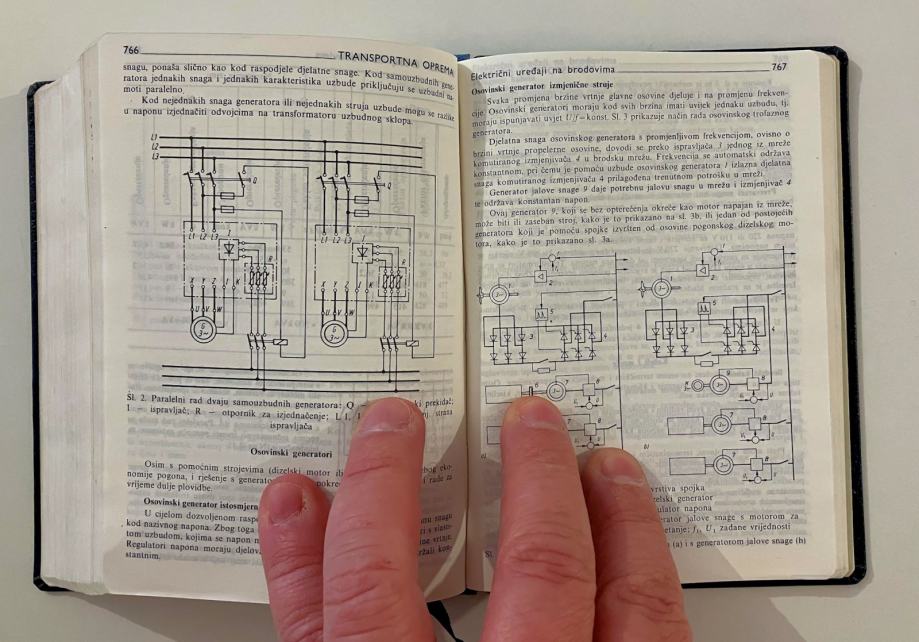 766
TRANSPORTNA OPREMA
snagu, ponaša slično kao kod raspodjele djelatne snage. Kod samouzbudnih gene-
ratora jednakih snaga i jednakih karakteristika uzbude priključuju se uzbudni na-
moti paralelno.
Kod nejednakih snaga generatora ili nejednakih struja uzbude mogu se razlike
u naponu izjednačiti odvojcima na transformatoru uzbudnog sklopa.
L1
L2
L3
Q
Q
L1 L2 L3
I
R
L1 L2 L3
I
R
X Y Z J K
X Y Z J K
U V W
U V W
G
3~
G
3~
Sl. 2. Paralelni rad dvaju samouzbudnih generatora: Q prekidač;
I — ispravljač; R — otpornik za izjednačenje; strana
ispravljača
Osovinski generatori
Osim s pomoćnim strojevima (dizelski motor eko-
nomije pogona, i rješenje s i rade za
vrijeme dulje plovidbe.
Osovinski generator
U cijelom dozvoljenom snagu
kod nazivnog napona. Zbog toga
tom uzbudom, kojima se napon
Regulatori napona moraju
stantnim.
Električni uređaji na brodovima
767
Osovinski generator izmjenične struje
Svaka promjena brzine vrtnje glavne osovine djeluje i na promjenu frekven-
cije. Osovinski generatori moraju kod svih brzina imati uvijek jednaku uzbudu, tj.
moraju ispunjavati uvjet U/f=konst. Sl. 3 prikazuje način rada osovinskog trofaznog
generatora.
Djelatna snaga osovinskog generatora s promjenljivom frekvencijom, ovisno o
brzini vrtnje propelerne osovine, dovodi se preko ispravljača 3 jednog iz mreže
komutiranog izmjenjivača 4 u brodsku mrežu. Frekvencija se automatski održava
konstantnom, pri čemu je pomoću uzbude osovinskog generatora 1 izlazna djelatna
snaga komutiranog izmjenjivača 4 prilagođena trenutnom potrošku u mreži.
Generator jalove snage 9 daje potrebnu jalovu snagu u mrežu i izmjenjivač 4
te održava konstantan napon.
Ovaj generator 9, koji se bez opterećenja okreće kao motor napajan iz mreže,
može biti ili zaseban stroj, kako je to prikazano na sl. 3b, ili jedan od postojećih
generatora koji je pomoću spojke izvršten od osovine pogonskog dizelskog mo-
tora, kako je to prikazano sl. 3a.
1
2
3
4
5
6
7
8
1
2
3
4
5
9
8
7
8
7
8
b)
spojka
generator
napona
jalove snage s motorom za
zadane vrijednosti
(a) i s generatorom jalove snage (b)
Sl.